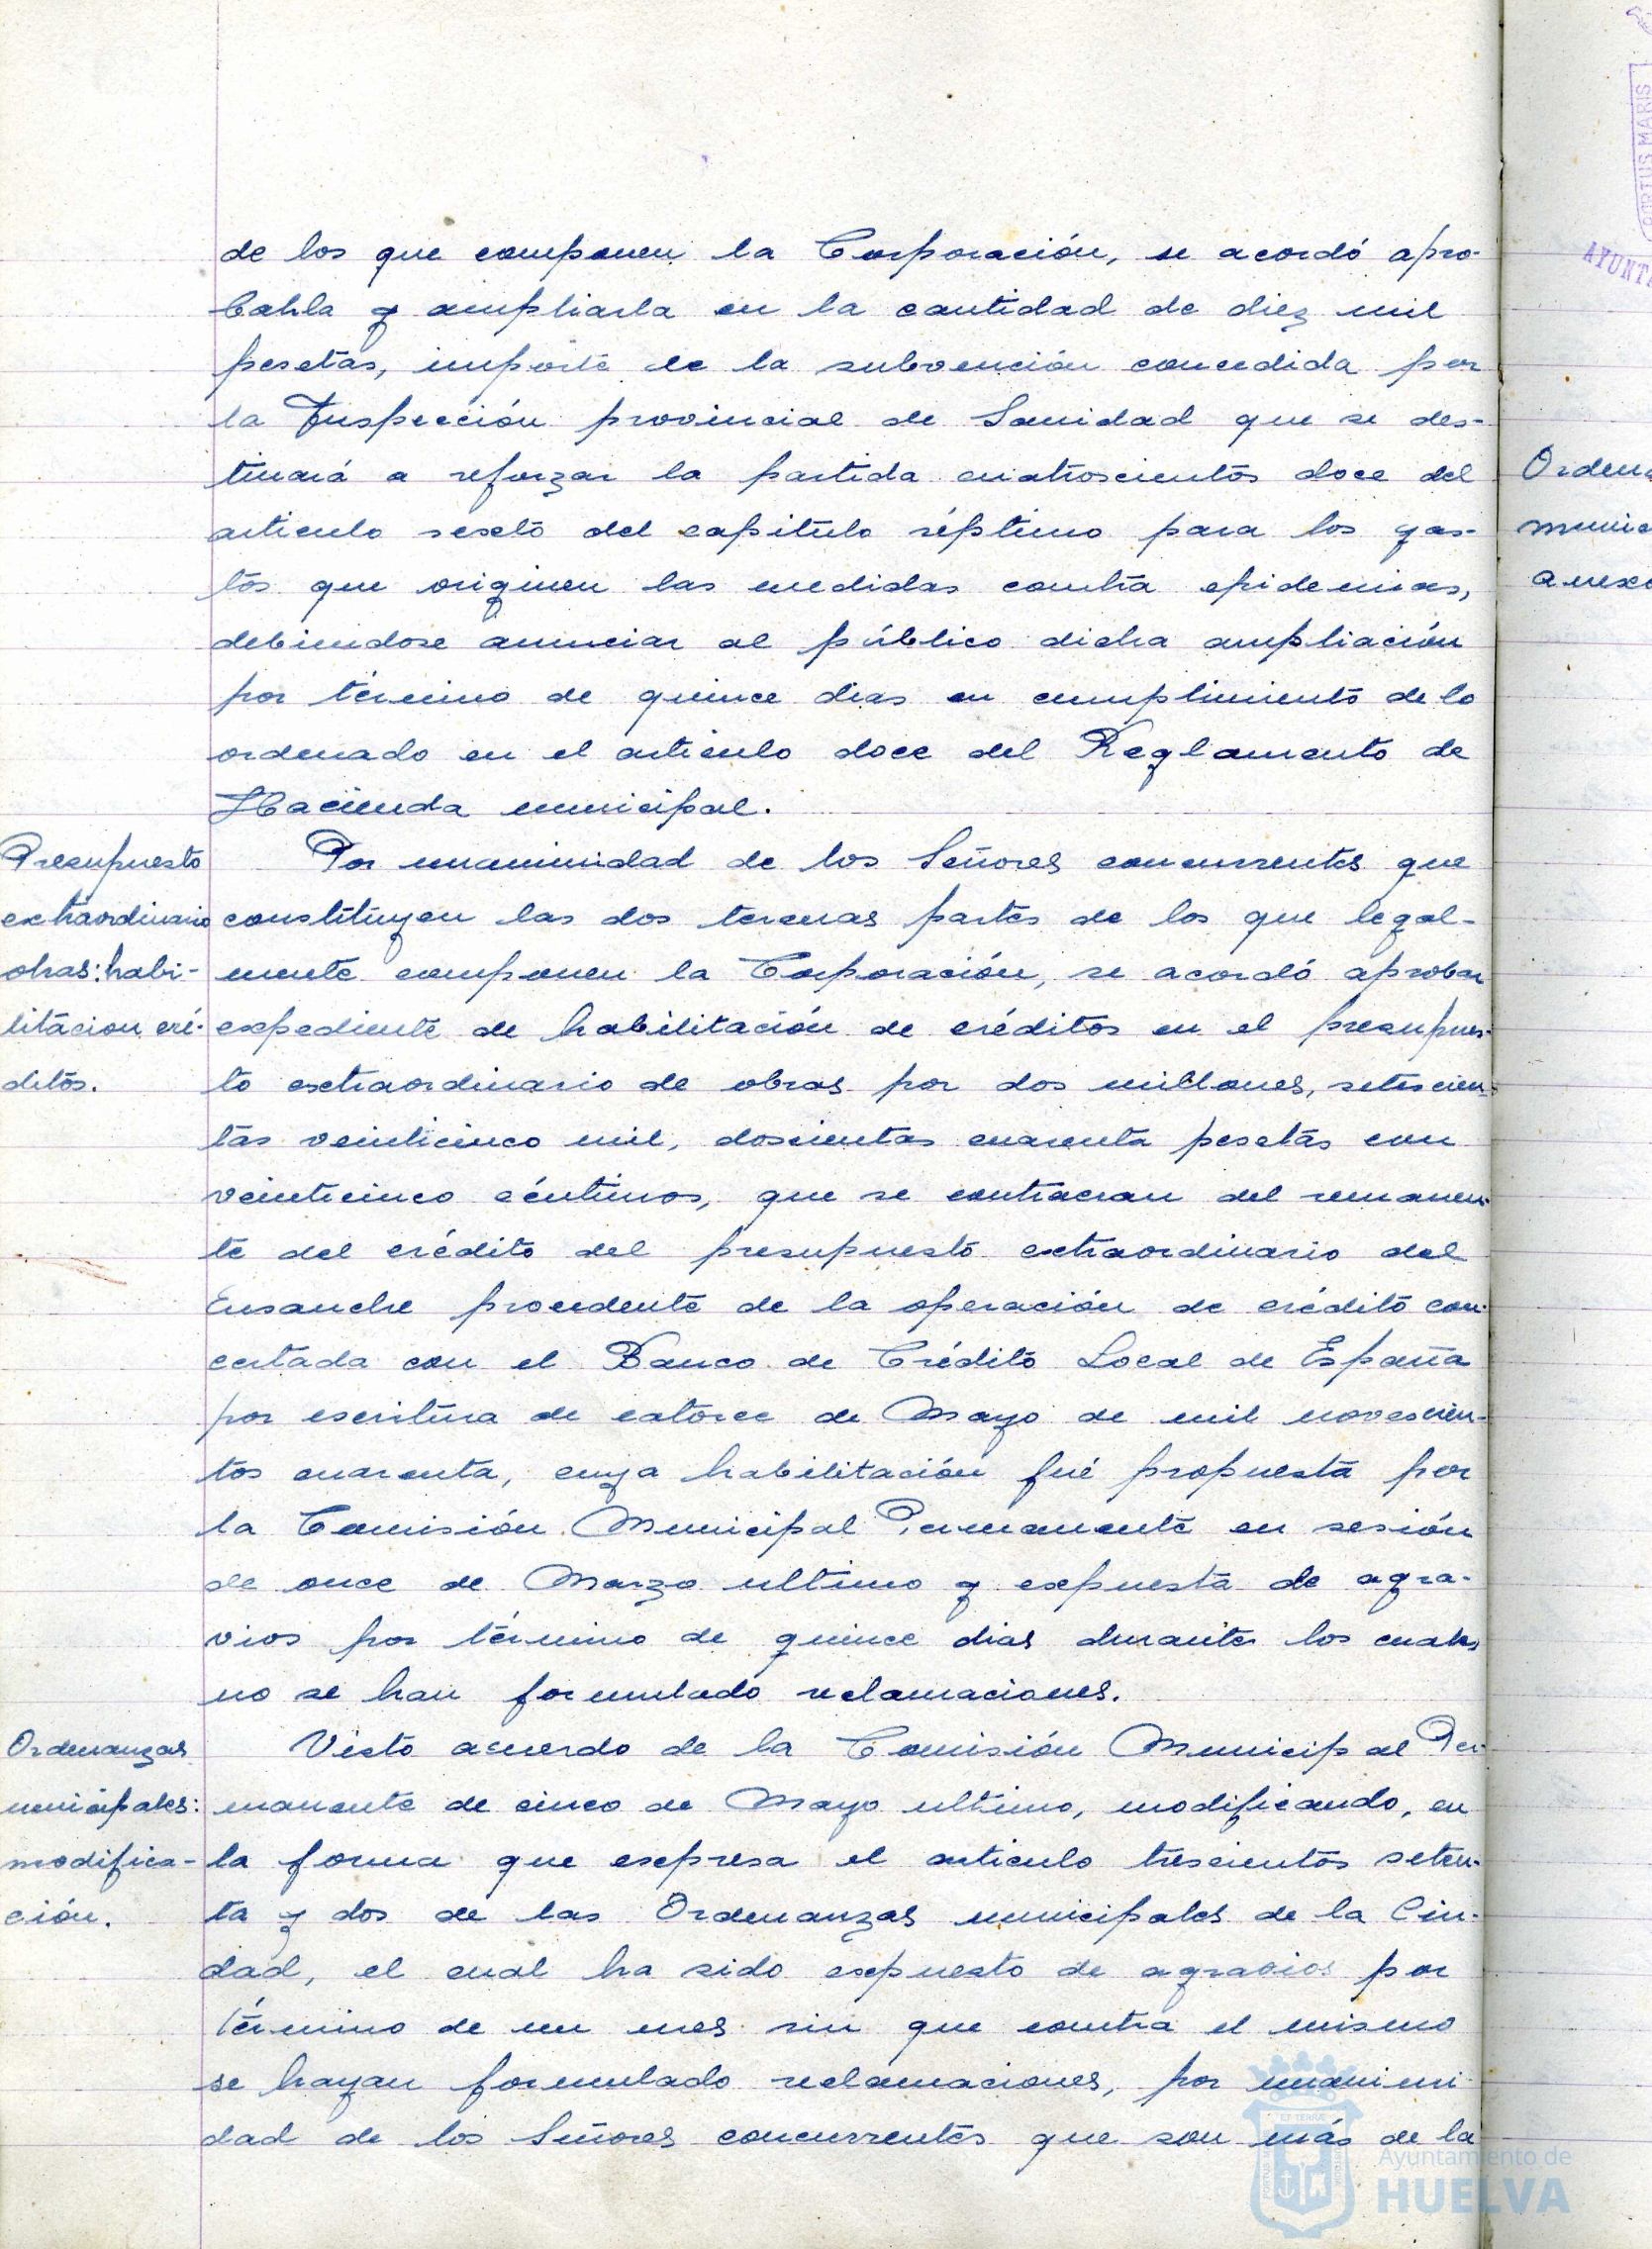 de los que componen la Corporación, se acordó apro-
barla y ampliarla en la cantidad de diez mil
pesetas, importe de la subvención concedida por
la Inspección provincial de Sanidad que se des-
tinará a reforzar la partida cuatroscientos doce del
articulo sexto del capitulo séptimo para los gas-
tos que originen las medidas contra epidemias,
debiendose anunciar al público dicha ampliación
por término de quince dias en cumplimiento de lo
ordenado en el articulo doce del Reglamento de
Hacienda municipal.
Presupuesto
extraordinario
obras: habi-
litacion cré-
ditos.
Por unanimidad de los Señores concurrentes que
constituyen las dos terceras partes de los que legal-
mente componen la Corporación, se acordó aprobar
expediente de habilitación de créditos en el presupues-
to extraordinario de obras por dos millones, setescien-
tas veinticinco mil, doscientas cuarenta pesetas con
veinticinco céntimos, que se contraeran del remanen-
te del crédito del presupuesto extraordinario del
Ensanche procedente de la operación de crédito con-
certada con el Banco de Crédito Local de España
por escritura de catorce de Mayo de mil novescien-
tos cuarenta, cuya habilitación fué propuesta por
la Comisión Municipal Permanente en sesión
de once de Marzo ultimo y expuesta de agra-
vios por término de quince dias durante los cuales
no se han formulado reclamaciones.
Ordenanzas
municipales:
modifica-
ción.
Visto acuerdo de la Comisión Municipal Per-
manente de cinco de Mayo ultimo, modificando, en
la forma que expresa el articulo trescientos seten-
ta y dos de las Ordenanzas municipales de la Ciu-
dad, el cual ha sido expuesto de agravios por
término de un mes sin que contra el mismo
se hayan formulado reclamaciones, por unanimi
dad de los Señores concurrentes que son más de la
PORTUS MARIS
Ayuntamiento de
HUELVA